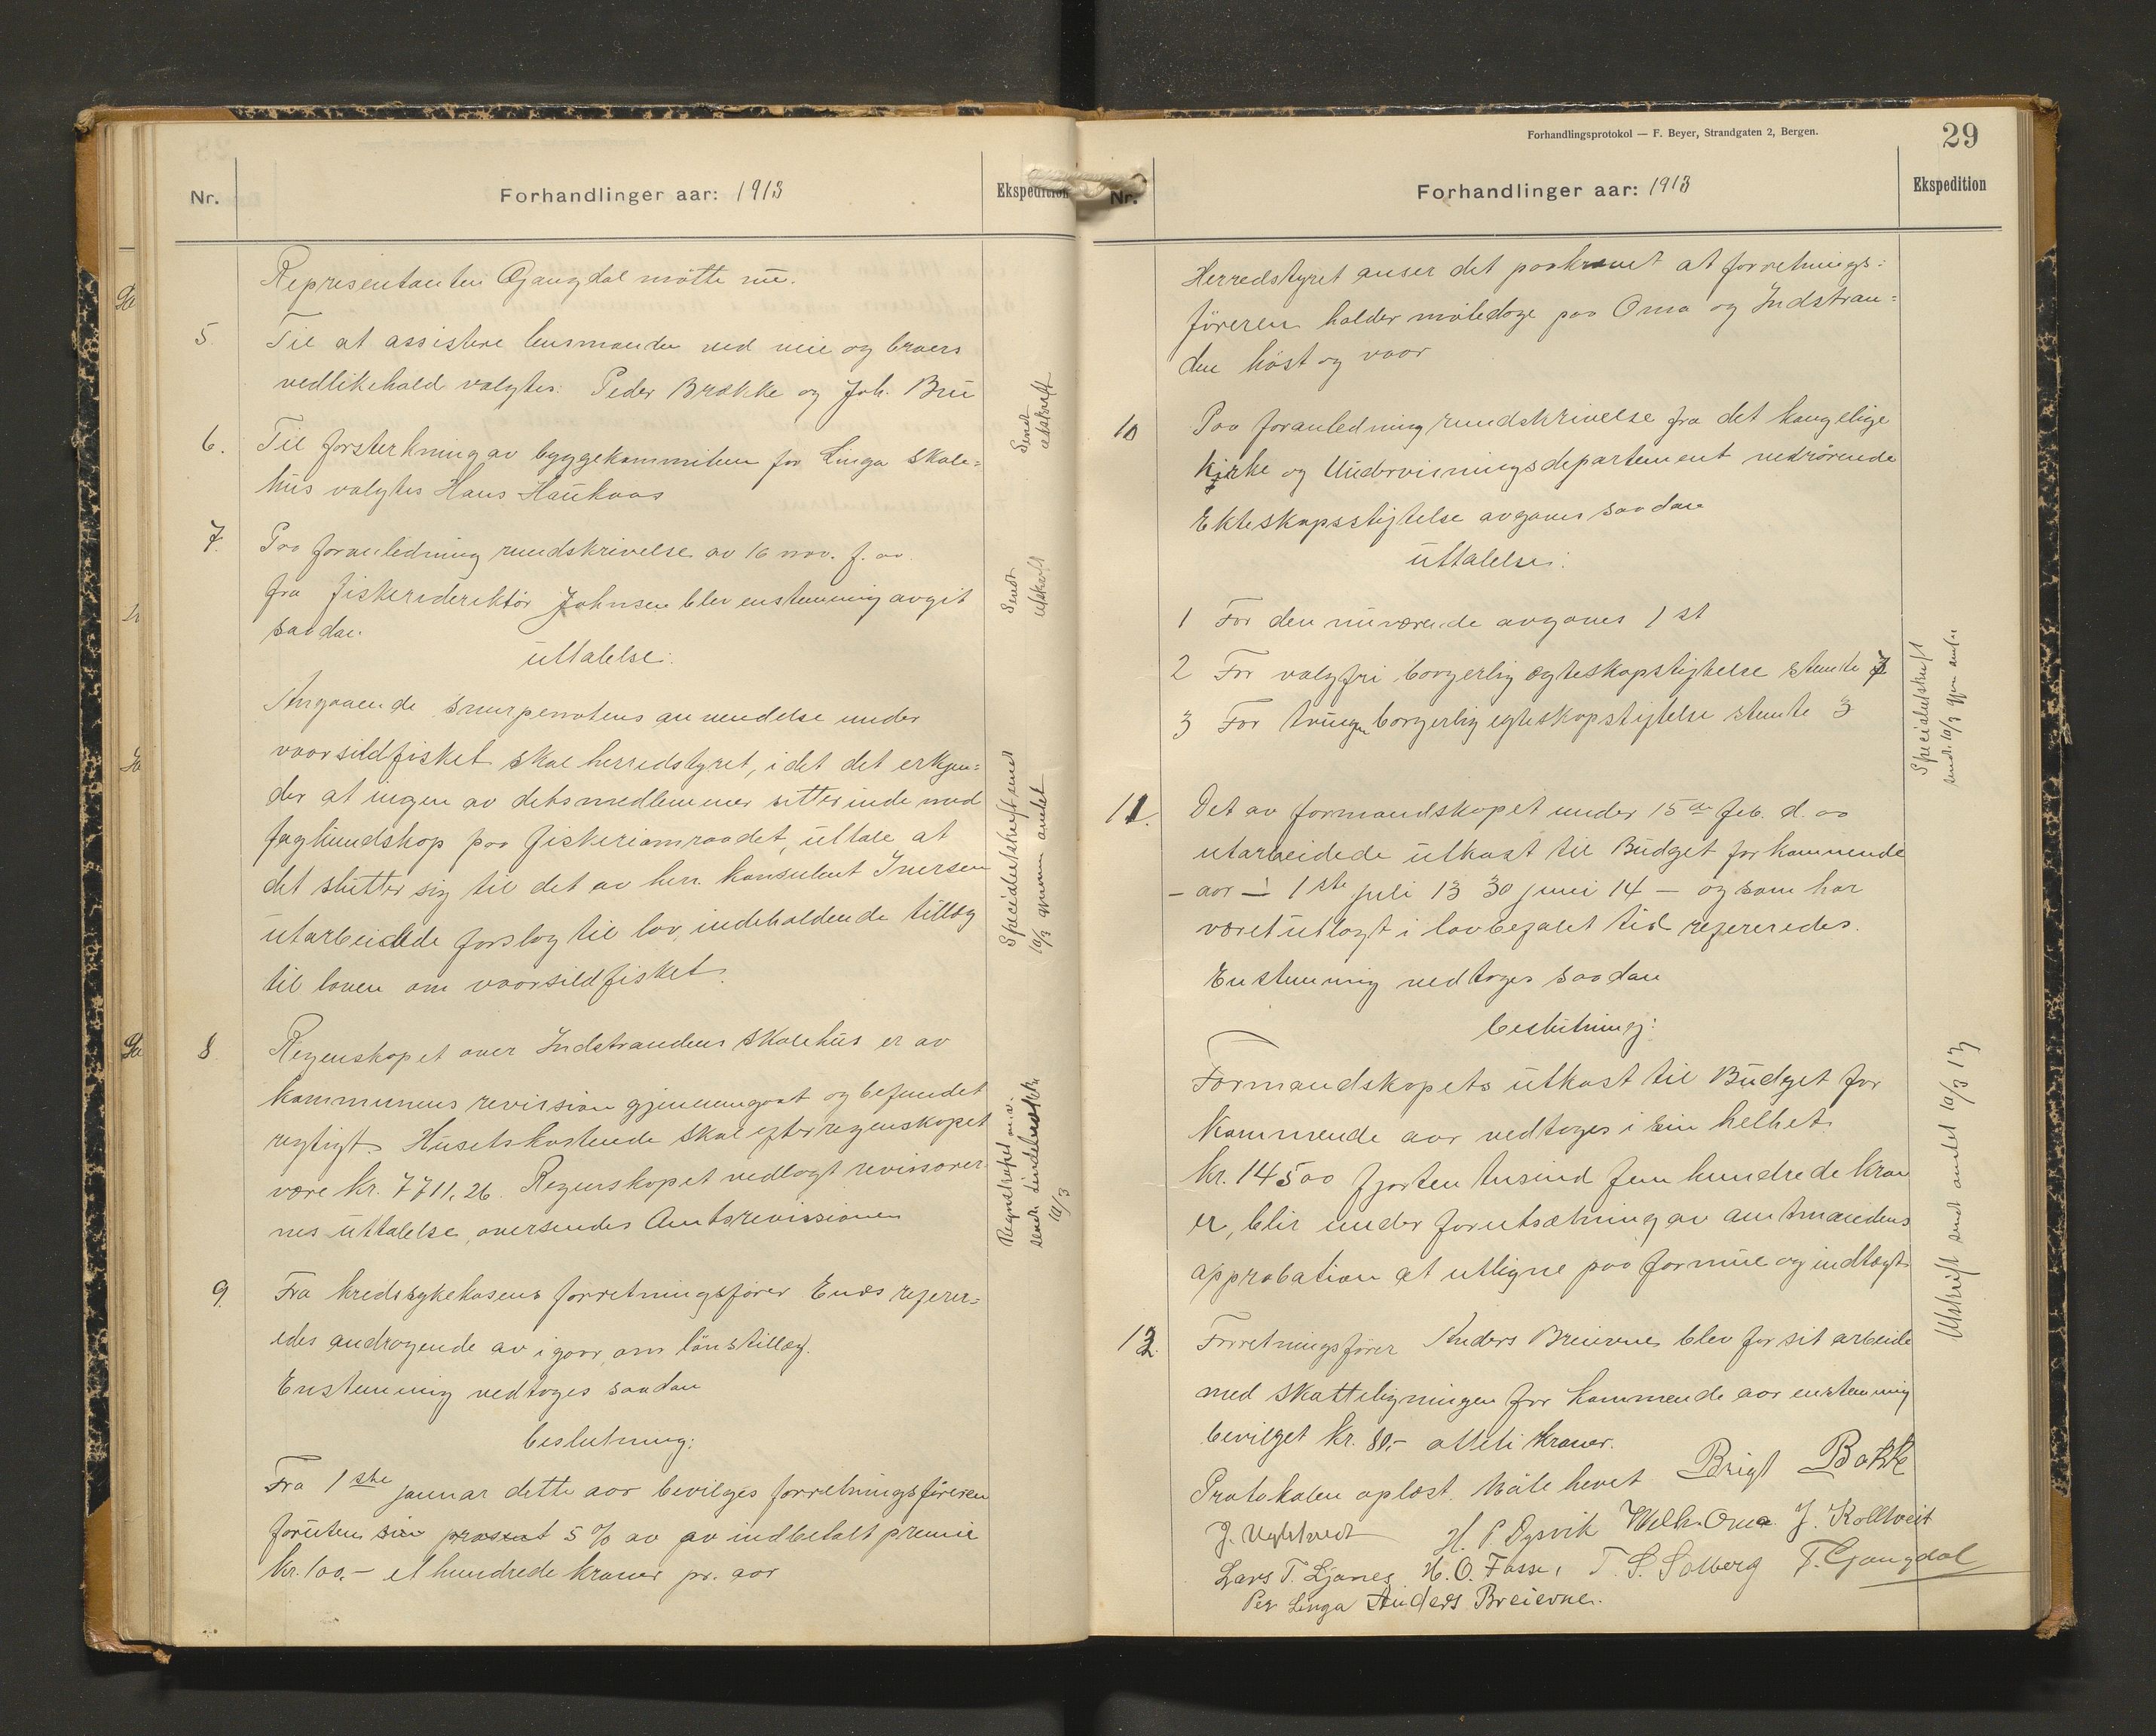 Nr.
Forhandlinger aar: 1913
Ekspedition
Representanten Gjangdal møtte nu.
5. Til at assistere lensmanden ved veie og broers
vedlikehald valgtes: Peder Brække og Joh. Bru
6. Til forsterkning av byggekommiteen for Linga skole=
hus valgtes Hans Haukaas
Sendt utskrift
7. Paa foranledning rundskrivelse av 16 nov. f. aa.
fra fiskeridirektør Johnsen blev enstemmig avgit
saadan
uttalelse:
Sendt utskrift
Angaaende snurpenotens anvendelse under
vaarsildfisket skal herredstyret, idet det erkjen=
der at ingen av dets medlemmer sitter inde med
fagkundskap paa fiskeriomraadet, uttale at
det slutter sig til det av herr konsulent Iversen
utarbeidede forslag til lov, indeholdende tillæg
til loven om vaarsildfisket.
Specialutskrift sendt
10/3 gjennem amtet
8. Regnskapet over Indstrandens skolehus er av
kommunens revision gjennemgaat og befundet
rigtigt. Husets kostende skal efter regnskapet
være kr. 7711,26. Regnskapet vedlagt revisorer
nes uttalelse, oversendes Amtsrevisionen
Regnskapet m.v.
10/3
9. Fra kredssykekasens forretningsfører Enes referer=
edes andragende av igaar om lønstillæg.
Enstemmig vedtoges saadan
beslutning:
Fra 1ste januar dette aar bevilges forretningsføreren
foruten sin prosent 5 % av av indbetalt premie
kr. 100,- et hundrede kroner pr. aar
Forhandlingsprotokol — F. Beyer, Strandgaten 2, Bergen.
29
Nr.
Forhandlinger aar: 1913
Ekspedition
Herredstyret anser det paakrævet at forretnings=
føreren holder møtedage paa Oma og Indstran=
den høst og vaar
10 Paa foranledning rundskrivelse fra det kongelige
Kirke og Undervisningsdepartement vedrørende
Ekteskapsstiftelse avgaves saadan
uttalelse:
1 For den nuværende avgaves 1 st
2 For valgfri borgerlig ægteskapstiftelse stemte 7
3 For tvungen borgerlig egteskapstiftelse stemte 3
Specialutskrift
sendt 10/3 gjen amtet
11. Det av formandskapet under 15de feb. d. aa
utarbeidede utkast til Budget for kommende
- aar - 1ste juli 13 30 juni 14 - og som har
været utlagt i lovbefalet tid refereredes.
Enstemmig vedtoges saadan
beslutning:
Formandskapets utkast til Budget for
kommende aar vedtoges i sin helhet.
Kr. 14500 fjorten tusind fem hundrede kron
er, blir under forutsætning av amtmandens
approbation at utligne paa formue og indtægt
Utskrift sendt amtet 10/3 13
12. Forretningsfører Anders Breievne blev for sit arbeide
med skatteligningen for kommende aar enstemmig
bevilget kr. 80,- otteti kroner.
Protokolen oplæst. Møte hevet Brigt Bakke
H. P. Dysvik Welh. Oma J. Kolltveit
Lars T. Ljones H. O. Fosse, T. S. Solberg T. Gjangdal
Per Linga Anders Breievne.